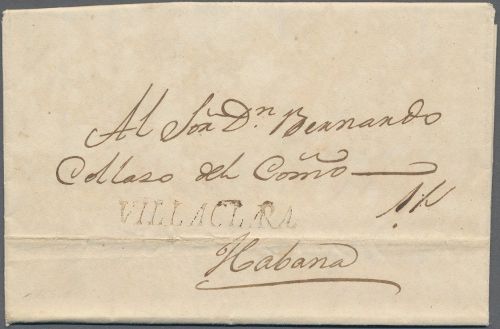 Al Sõr Dn. Bernando
Collaso del Comõ
VILLACLARA
Habana